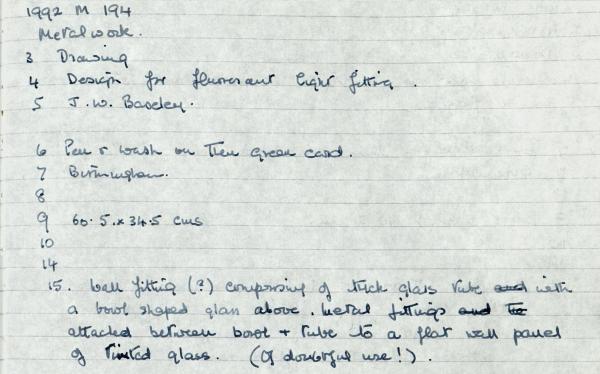 1992 M 194
Metalwork.
3 Drawing
4 Design for fluorescent light fitting.
5 J.W. Baseley.
6 Pen & wash on thin green card.
7 Birmingham.
8
9 60.5 x 34.5 cms
10
14
15. Wall fitting (?) comprising of thick glass tube and with
a bowl shaped glass above. Metal fittings and the
attached between bowl + tube to a flat wall panel
of tinted glass. (Of doubtful use!).